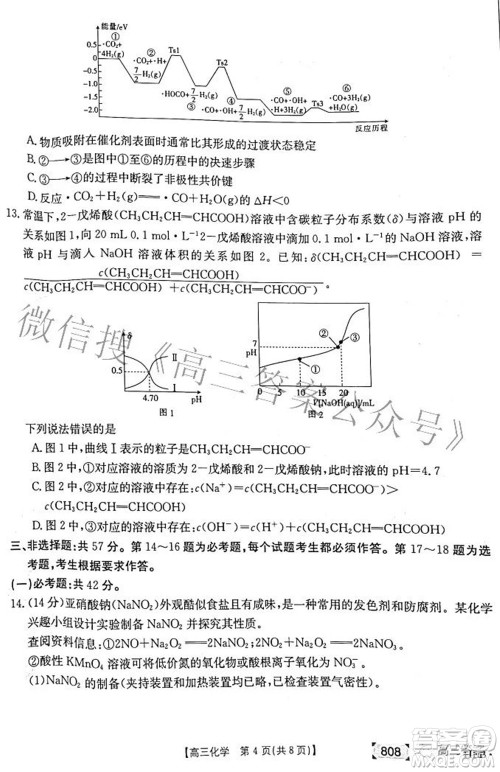 能量/eV
①
·CO₂+
4H₂(g)
②
·CO₂+·H+
7/2 H₂(g)
Ts1
③
·HOCO+7/2 H₂(g)
Ts2
④
·CO+·OH+
7/2 H₂(g)
⑤
·CO+·OH+
·H+3H₂(g)
Ts3
⑥
·CO+3H₂(g)
+H₂O(g)
0.5
0.0
-0.5
-1.0
-1.5
-2.0
反应历程
A. 物质吸附在催化剂表面时通常比其形成的过渡状态稳定
B. ②→③是图中①至⑥的历程中的决速步骤
C. ②→③的过程中断裂了非极性共价键
D. 反应·CO₂+H₂(g)══·CO+H₂O(g)的ΔH<0
13. 常温下,2-戊烯酸(CH₃CH₂CH═CHCOOH)溶液中含碳粒子分布系数(δ)与溶液 pH 的
关系如图1,向 20 mL 0.1 mol·L⁻¹2-戊烯酸溶液中滴加 0.1 mol·L⁻¹ NaOH 溶液,溶
液 pH 与滴入 NaOH 溶液体积的关系如图 2。已知:δ(CH₃CH₂CH═CHCOOH)=
c(CH₃CH₂CH═CHCOOH)
c(CH₃CH₂CH═CHCOOH)+c(CH₃CH₂CH═CHCOO⁻)
δ
0.5
Ⅱ
Ⅰ
4.70
pH
图 1
7
pH
①
②
③
0
10
20
V[NaOH(aq)]/mL
图 2
下列说法错误的是
A. 图 1 中,曲线Ⅰ表示的粒子是CH₃CH₂CH═CHCOO⁻
B. 图 2 中,①对应溶液的溶质为 2-戊烯酸和 2-戊烯酸钠,此时溶液的 pH=4.7
C. 图 2 中,②对应的溶液中存在:c(Na⁺)=c(CH₃CH₂CH═CHCOO⁻)>
c(CH₃CH₂CH═CHCOOH)
D. 图 2 中,③对应的溶液中存在:c(OH⁻)=c(H⁺)+c(CH₃CH₂CH═CHCOOH)
三、非选择题:共 57 分。第 14～16 题为必考题,每个试题考生都必须作答。第 17～18 题为选
考题,考生根据要求作答。
(一)必考题:共 42 分。
14. (14 分)亚硝酸钠(NaNO₂)外观酷似食盐且有咸味,是一种常用的发色剂和防腐剂。某化学
兴趣小组设计实验制备 NaNO₂ 并探究其性质。
查阅资料信息:①2NO+Na₂O₂══2NaNO₂,2NO₂+Na₂O₂══2NaNO₃;
②酸性 KMnO₄ 溶液可将低价氮的氧化物或酸根离子氧化为 NO₃⁻。
(1)NaNO₂ 的制备(夹持装置和加热装置均已略,已检查装置气密性)。
【高三化学 第 4 页(共 8 页)】
808
微信搜《高三答案公众号》
MXQE.COM